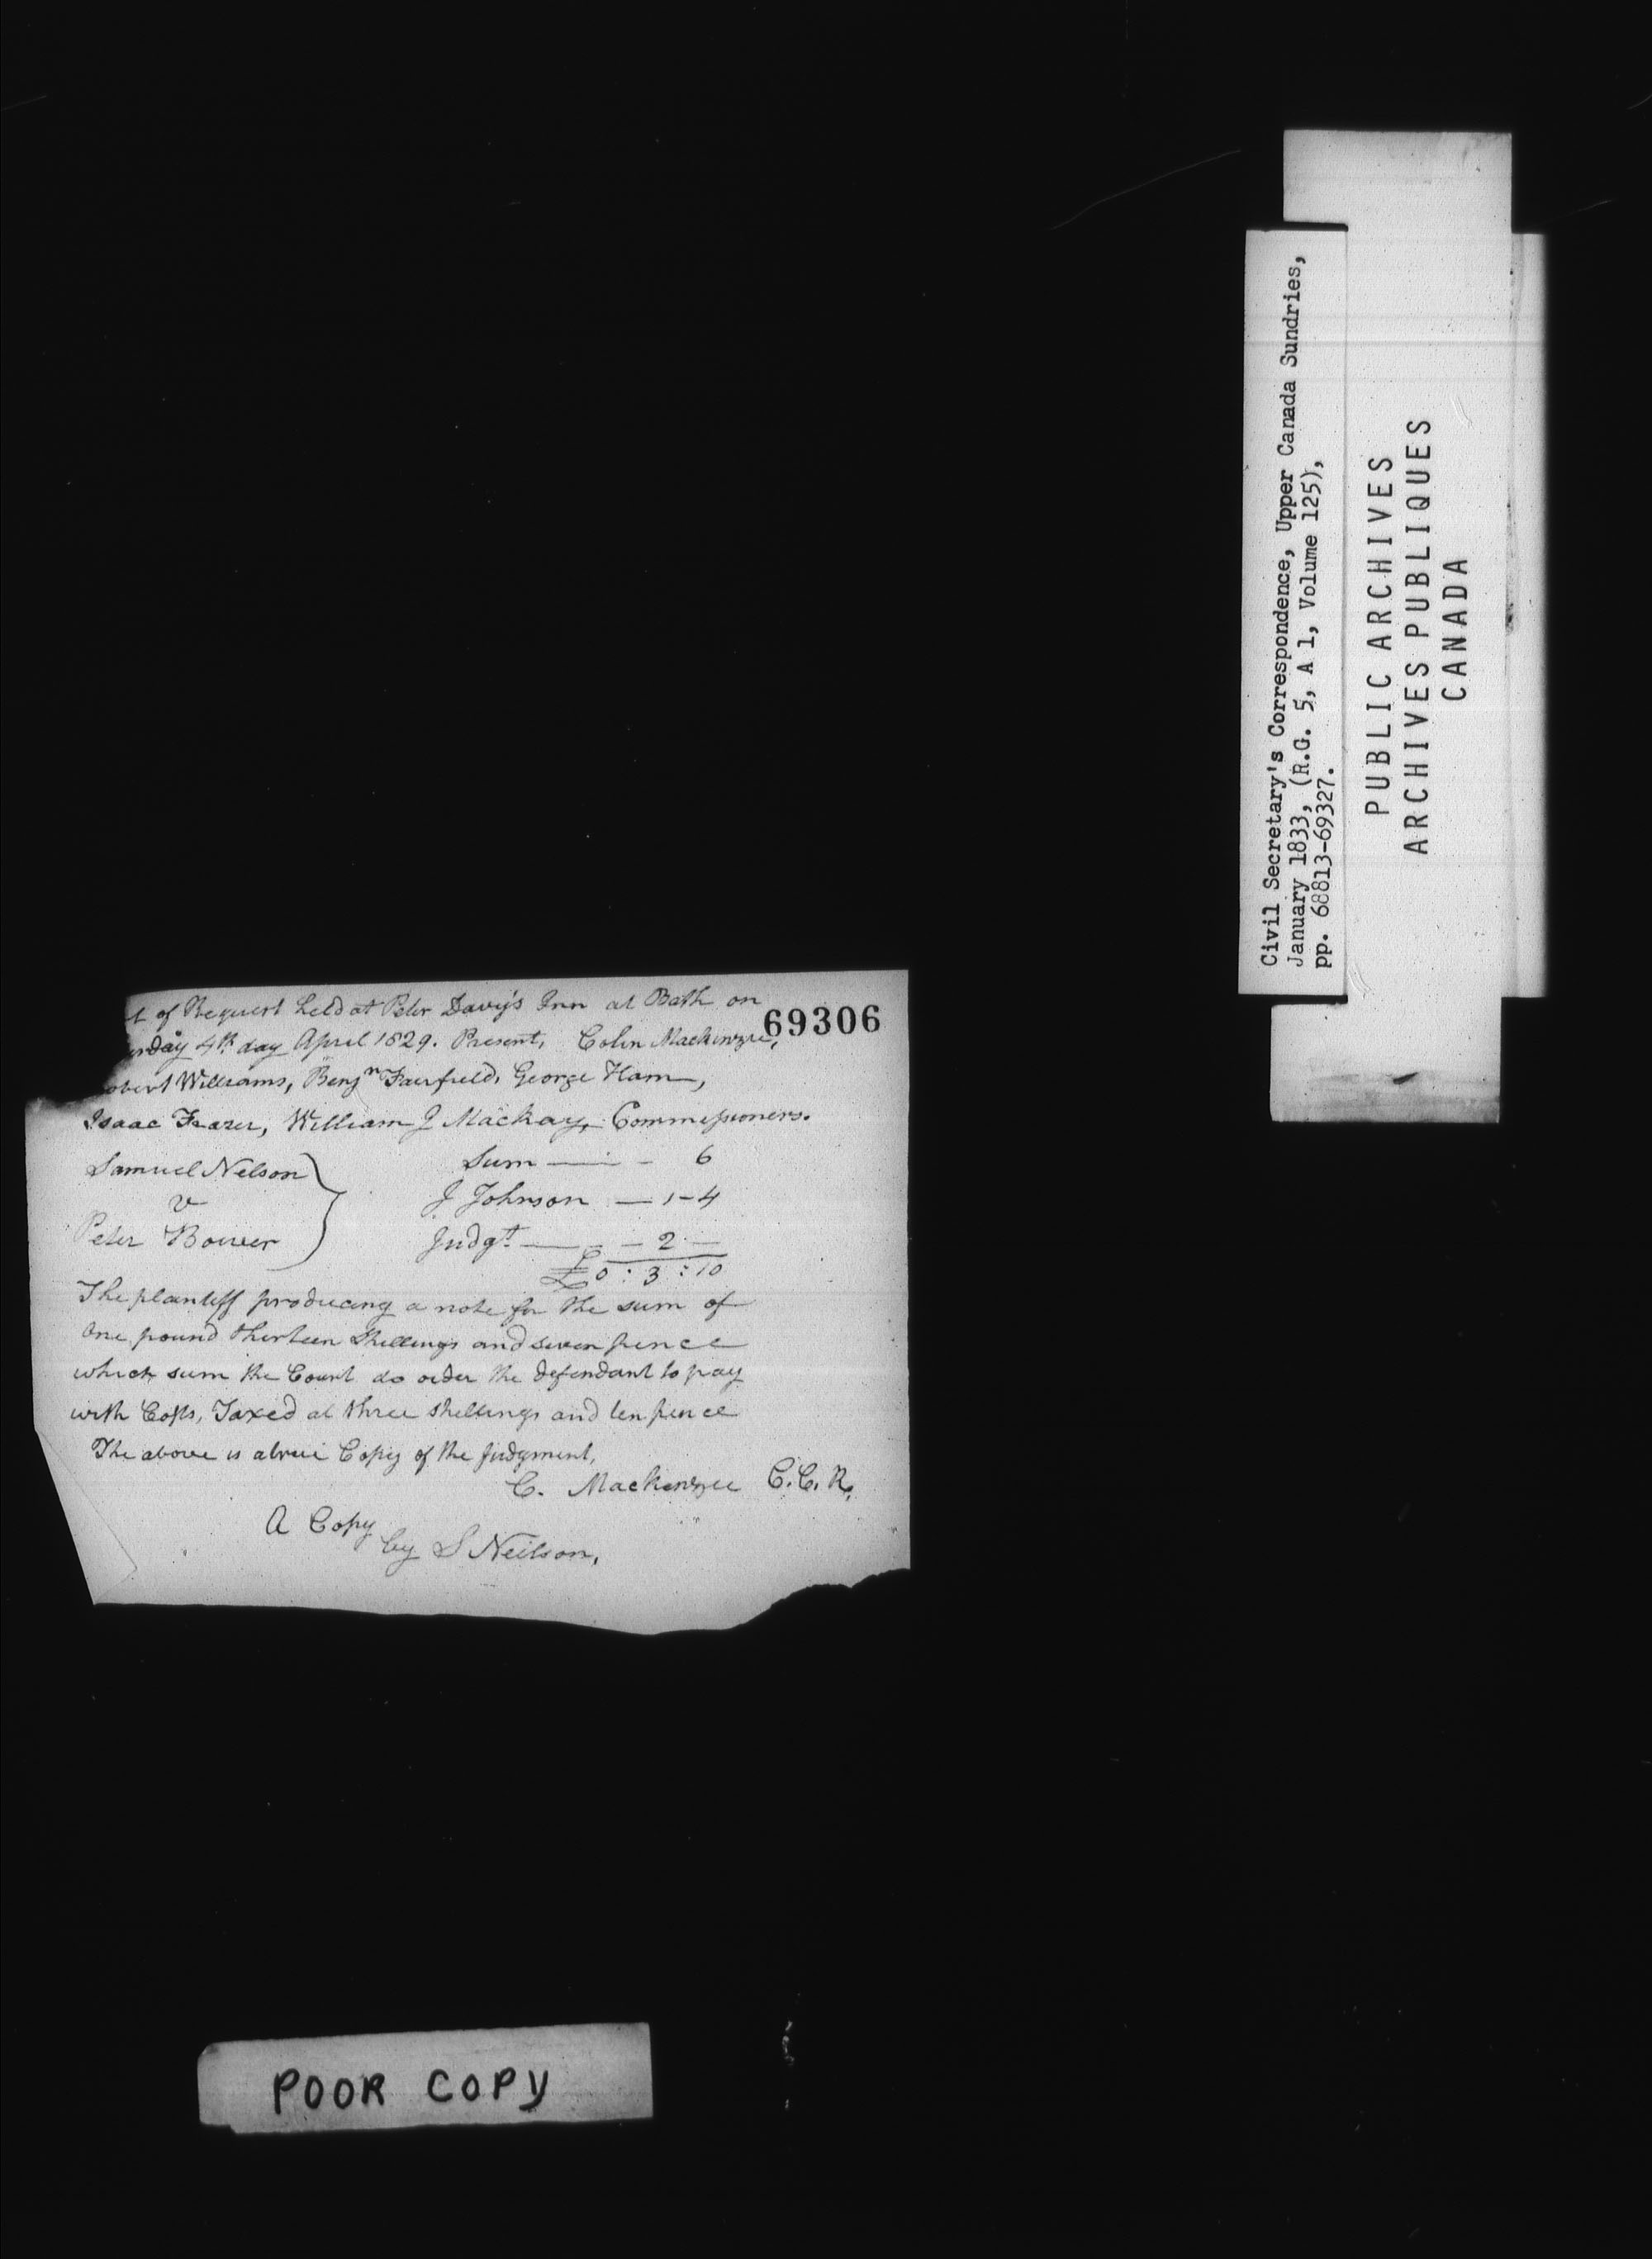 t of Request held at Peter Davy's Inn at Bath on
69306
urday 4th day April 1829. Present, Colin Mackenzie,
obert Williams, Benjn Fairfield, George Ham,
Isaac Frazer, William J Mackay, Commissioners.
Samuel Nelson
v
Peter Bower
Sum — — 6
J Johnson — 1-4
Judgt. — — 2 —
£0 : 3 : 10
The plantiff producing a note for the sum of
One pound thirteen Shillings and seven pence
which sum the Court do order the defendant to pay
with Costs, Taxed at three shillings and ten pence
The above is a true Copy of the Judgment,
C. Mackenzie C.C.R.
A Copy
by S Neilson,
POOR COPY
Civil Secretary's Correspondence, Upper Canada Sundries,
January 1833, (R.G. 5, A 1, Volume 125),
pp. 68813-69327.
PUBLIC ARCHIVES
ARCHIVES PUBLIQUES
CANADA